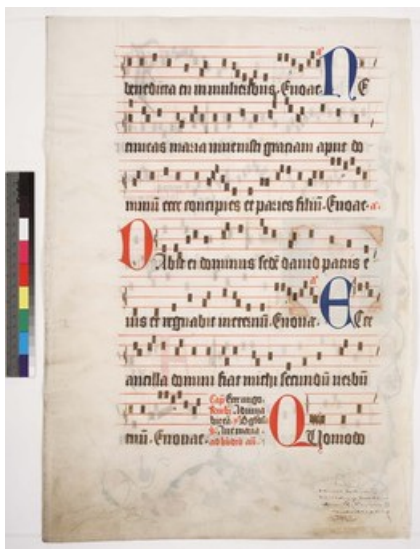 benedicta tu in mulieribus. Euouae. NE
timeas maria invenisti graciam aput do
minum ecce concipies et paries filiū. Euouae. a.
DAbit ei dominus sedē david patris e
ius et regnabit in eternū. Euouae. ECce
ancilla domini fiat michi secundū verbū
tuū. Euouae.
Cap. Ecce virgo.
Ave maria
QUomodo